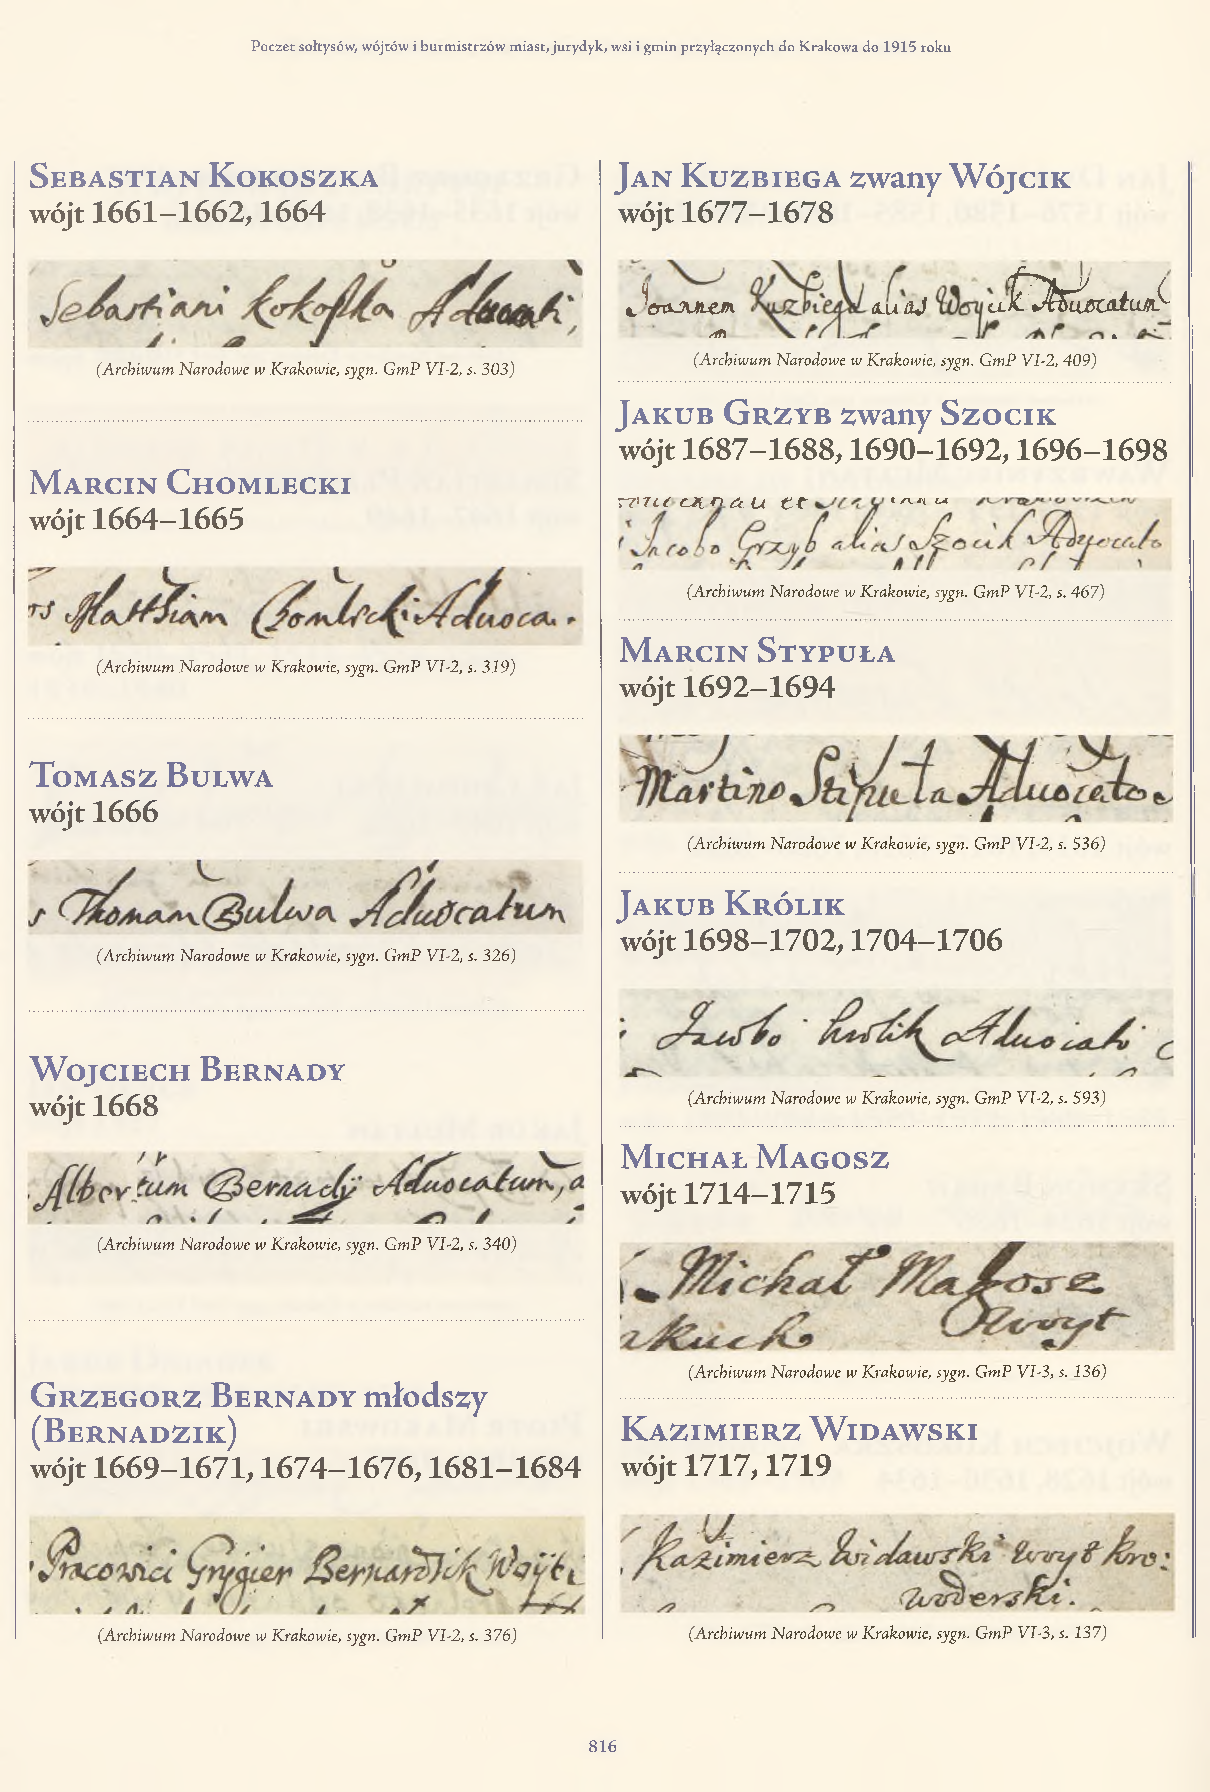 Poczet sołtysów, wójtów i burmistrzów miast, jurydyk, wsi i gmin przyłączonych do Krakowa do 1915 roku
Sebastian Kokoszka
wójt 1661–1662, 1664
Sebastiani Kokoszka Advocati,
(Archiwum Narodowe w Krakowie, sygn. GmP VI-2, s. 303)
Marcin Chomlecki
wójt 1664–1665
Matthiam Chomlecki Advoca
(Archiwum Narodowe w Krakowie, sygn. GmP VI-2, s. 319)
Tomasz Bulwa
wójt 1666
Thomam Bulwa Advocatum
(Archiwum Narodowe w Krakowie, sygn. GmP VI-2, s. 326)
Wojciech Bernady
wójt 1668
Albertum Bernady Advocatum, a
(Archiwum Narodowe w Krakowie, sygn. GmP VI-2, s. 340)
Grzegorz Bernady młodszy
(Bernadzik)
wójt 1669–1671, 1674–1676, 1681–1684
Pracowici Grygier Bernardzik Woÿt
(Archiwum Narodowe w Krakowie, sygn. GmP VI-2, s. 376)
Jan Kuzbiega zwany Wójcik
wójt 1677–1678
Joannem Kuzbiega alias Woycik Advocatum
(Archiwum Narodowe w Krakowie, sygn. GmP VI-2, 409)
Jakub Grzyb zwany Szocik
wójt 1687–1688, 1690–1692, 1696–1698
Jacobo Grzyb alias Szocik Advocato
(Archiwum Narodowe w Krakowie, sygn. GmP VI-2, s. 467)
Marcin Stypuła
wójt 1692–1694
Martino Stiputa Advocato
(Archiwum Narodowe w Krakowie, sygn. GmP VI-2, s. 536)
Jakub Królik
wójt 1698–1702, 1704–1706
Jacobo Krolik Advocati
(Archiwum Narodowe w Krakowie, sygn. GmP VI-2, s. 593)
Michał Magosz
wójt 1714–1715
Michał Magosz
Woyt
(Archiwum Narodowe w Krakowie, sygn. GmP VI-3, s. 136)
Kazimierz Widawski
wójt 1717, 1719
Kazimierz Widawski Woyt kro:
woderski.
(Archiwum Narodowe w Krakowie, sygn. GmP VI-3, s. 137)
816